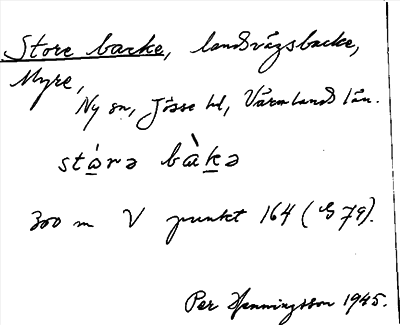 Store backe, landsvägsbacke,
Myre,
Ny sn, Jösse hd, Värmlands län.
stɑ̀rə bàkə
300 m V punkt 164 (G 79).
Per Henningsson 1945.